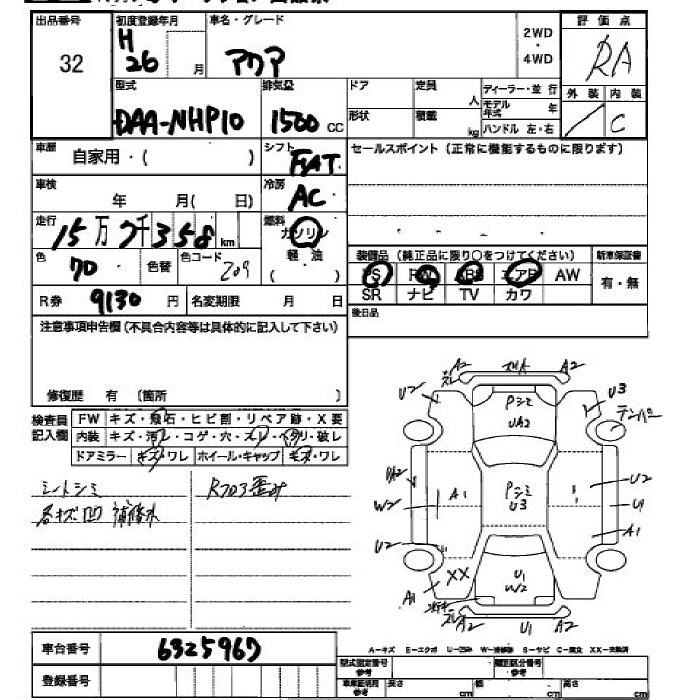 出品番号
32
初度登録年月
H
26 月
車名・グレード
アクア
2WD
・
4WD
評価点
RA
外装 内装
C
型式
DAA-NHP10
排気量
1500 cc
ドア
形状
定員
人
積載
kg
ディーラー・並行
モデル年式 年
ハンドル 左・右
車歴
自家用・( )
シフト
FAT
セールスポイント (正常に機能するものに限ります)
車検
年 月( 日)
冷房
AC
走行
15万7千358km
燃料
ガソリン
軽油
( )
色
クロ
色替
色コード
209
装備品 (純正品に限り○をつけてください)
PS PW ABS エアB AW
SR ナビ TV カワ
新車保証書
有・無
R券
9130 円
名変期限 月 日
後日品
注意事項申告欄 (不具合内容等は具体的に記入して下さい)
修復歴 有 (箇所 )
検査員
記入欄
FW キズ・飛石・ヒビ割・リペア跡・X要
内装 キズ・汚レ・コゲ・穴・スレ・ヘタリ・破レ
ドアミラー キズ・ワレ ホイール・キャップ キズ・ワレ
シートシミ
各キズ凹 補修跡
Rフロア歪み
A2
スレ
A2
U2
Pシミ
UA2
U3
テンパー
A2
W2
A1
Pシミ
U3
U2
U1
A1
U2
XX
A1
U1
W2
スレ
A2
U1
A2
A-キズ E-エクボ U-凹み W-補修跡 S-サビ C-腐食 XX-交換済
車台番号
6325967
登録番号
型式指定番号
参考
類別区分番号
参考
車車証明用
参考
長さ cm
幅 cm
高さ cm